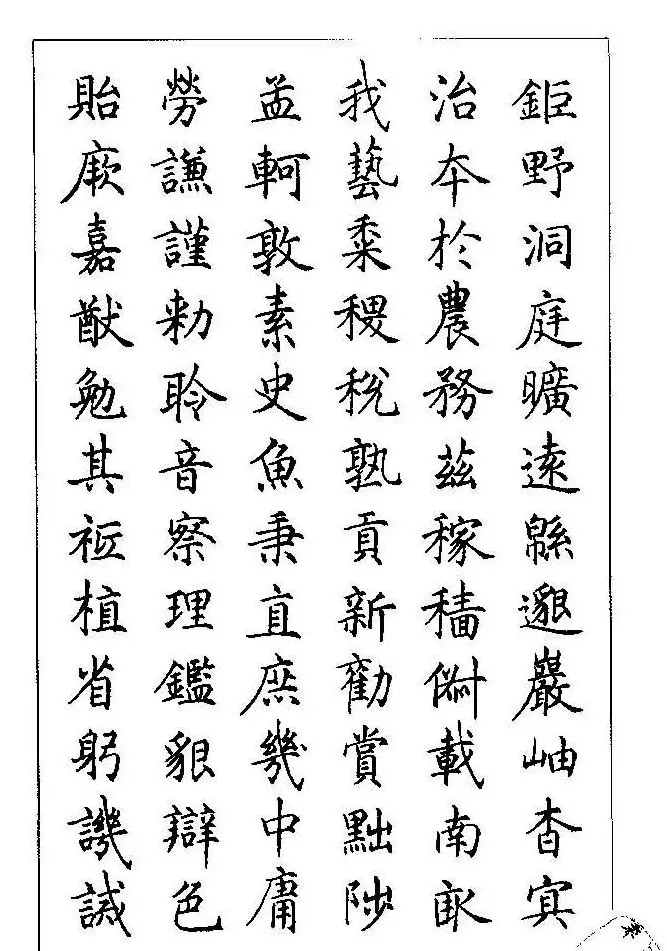 鉅野洞庭曠遠緜邈巖岫杳冥
治本於農務茲稼穡俶載南畝
我藝黍稷稅熟貢新勸賞黜陟
孟軻敦素史魚秉直庶幾中庸
勞謙謹勅聆音察理鑑貌辯色
貽厥嘉猷勉其祗植省躬譏誡